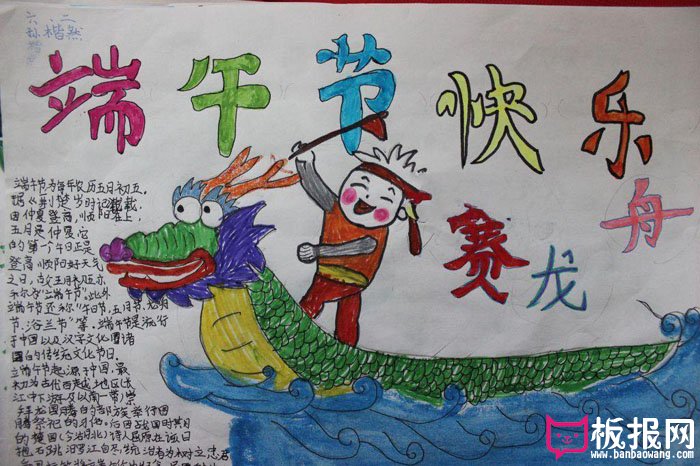 六、二
孙楷然
端午节快乐
赛龙舟
端午节为每年农历五月初五。
据《荆楚岁时记》载,
因仲夏登高,顺阳在上,
五月是仲夏,它
的第一个午日正是
登高顺阳好天气
之日,故五月初五亦
称为"端午节"。此外
端午节还称"午日节,五月节,龙舟
节,浴兰节"等。端午节是流行
于中国以及汉字文化圈诸
国的传统文化节日。
端午节起源于中国,最
初为古代百越地区(长
江中下游及以南一带)崇
拜龙图腾的部族举行图
腾祭祀的节日。
的楚国(今湖北)诗人屈原在该日
抱石跳汨罗江自尽,统治者为树立忠君
板报网
www.banbaowang.com